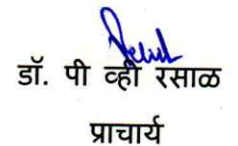 डॉ. पी व्ही रसाळ
प्राचार्य